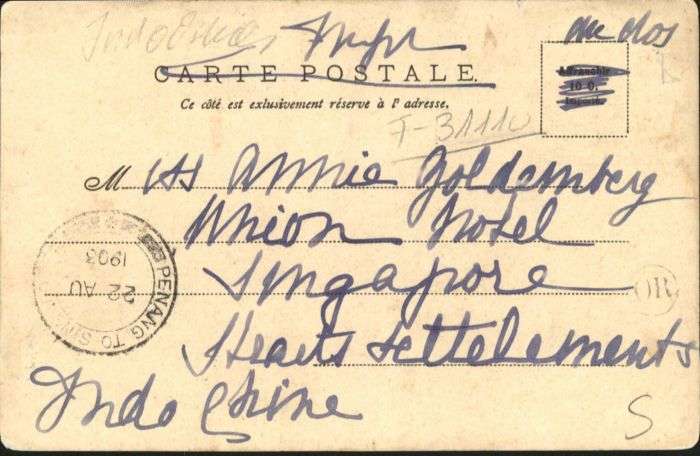 Indochine Impr au dos
CARTE POSTALE.
Ce côté est exlusivement réserve à l' adresse.
Affranchir
10 C.
F-31110
M iss Annie Goldemberg
Union Hotel
Singapore
Straits Settelements
Indo Chine
PENANG TO SIN
22 AU
1903
OR
S